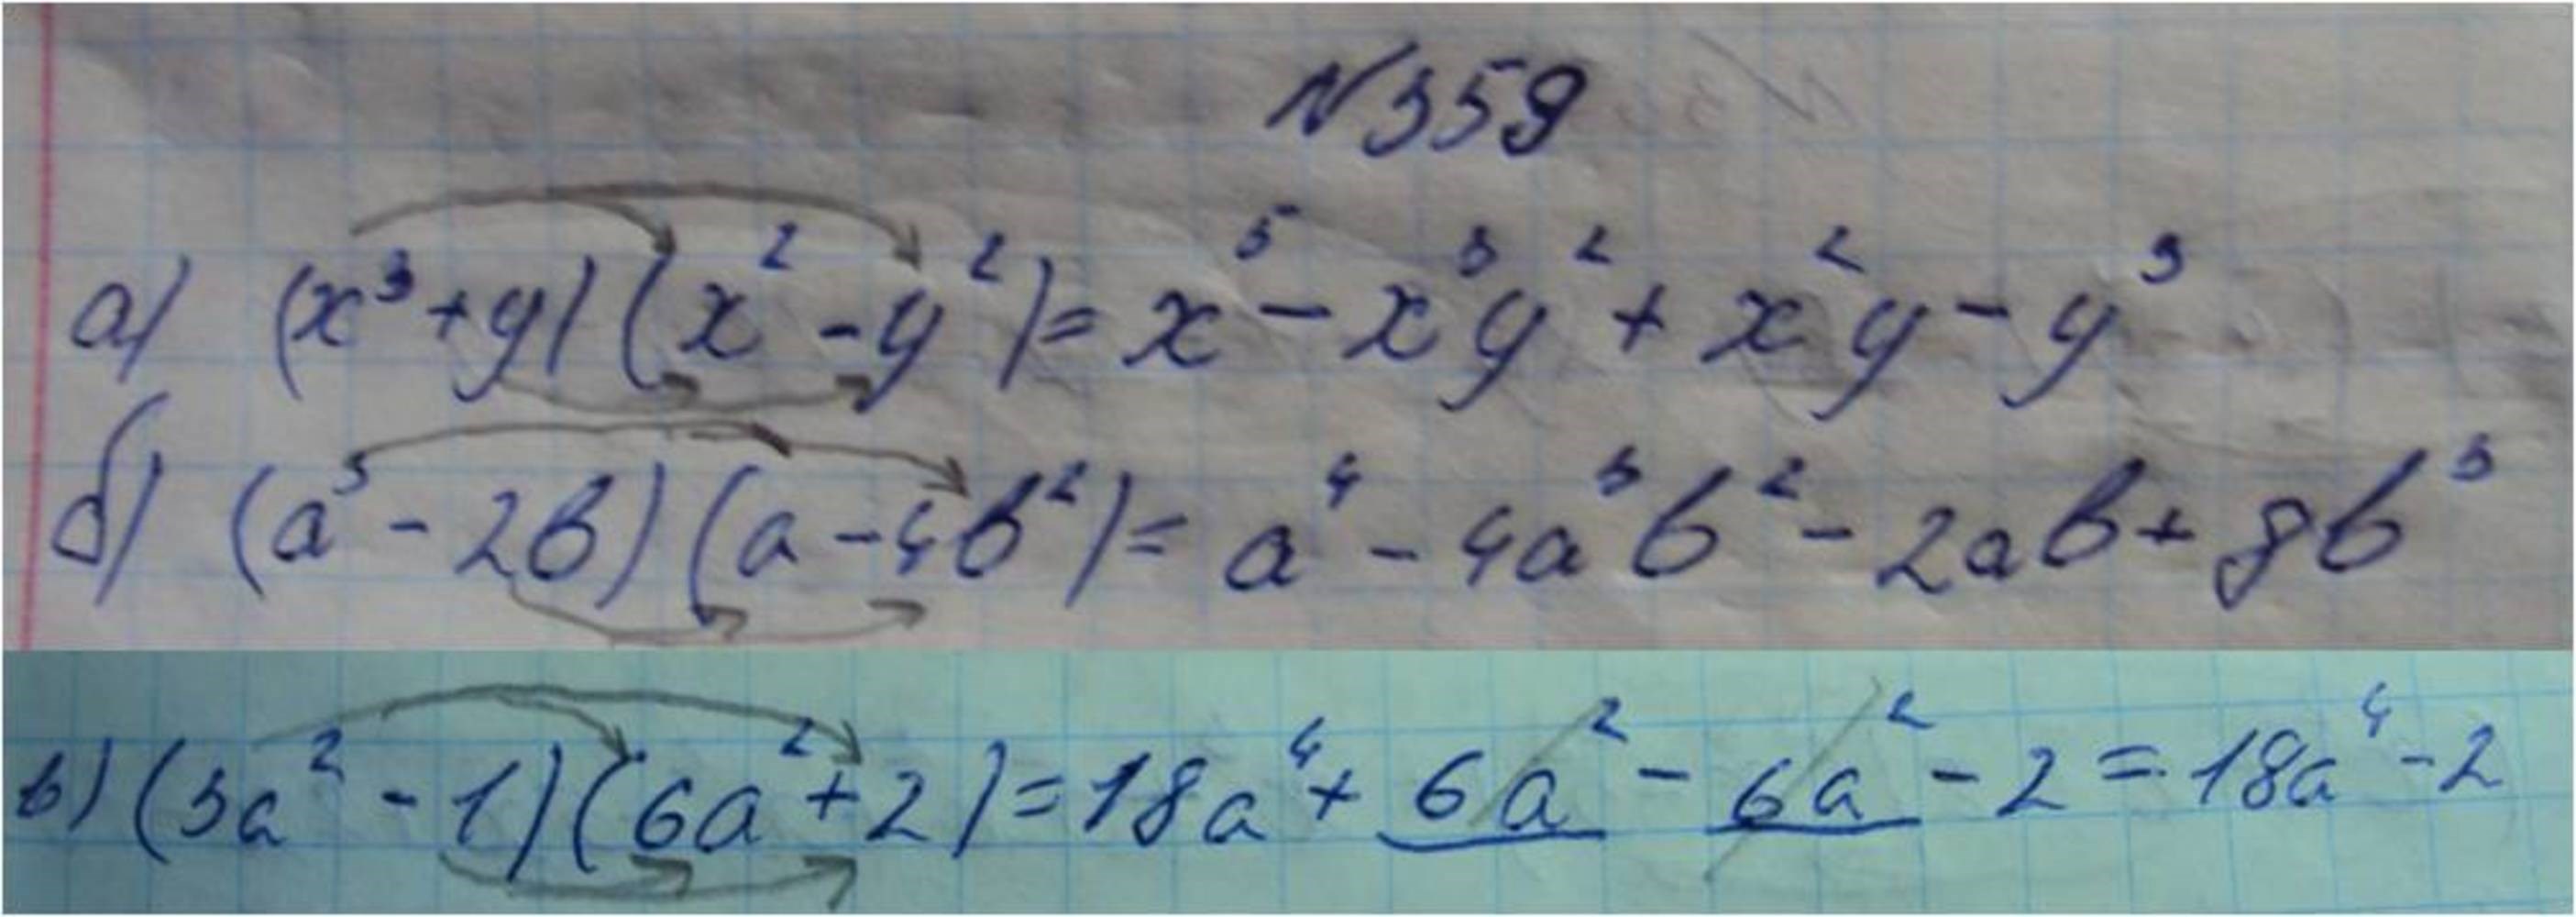 N359
а) (x³+y)(x²-y²)=x⁵-x³y²+x²y-y³
б) (a³-2b)(a-4b²)=a⁴-4a³b²-2ab+8b³
в) (3a²-1)(6a²+2)=18a⁴+6a²-6a²-2=18a⁴-2